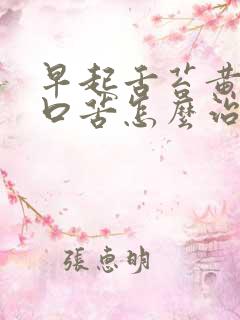 早起舌苔黄
口苦怎麽治
張惠明